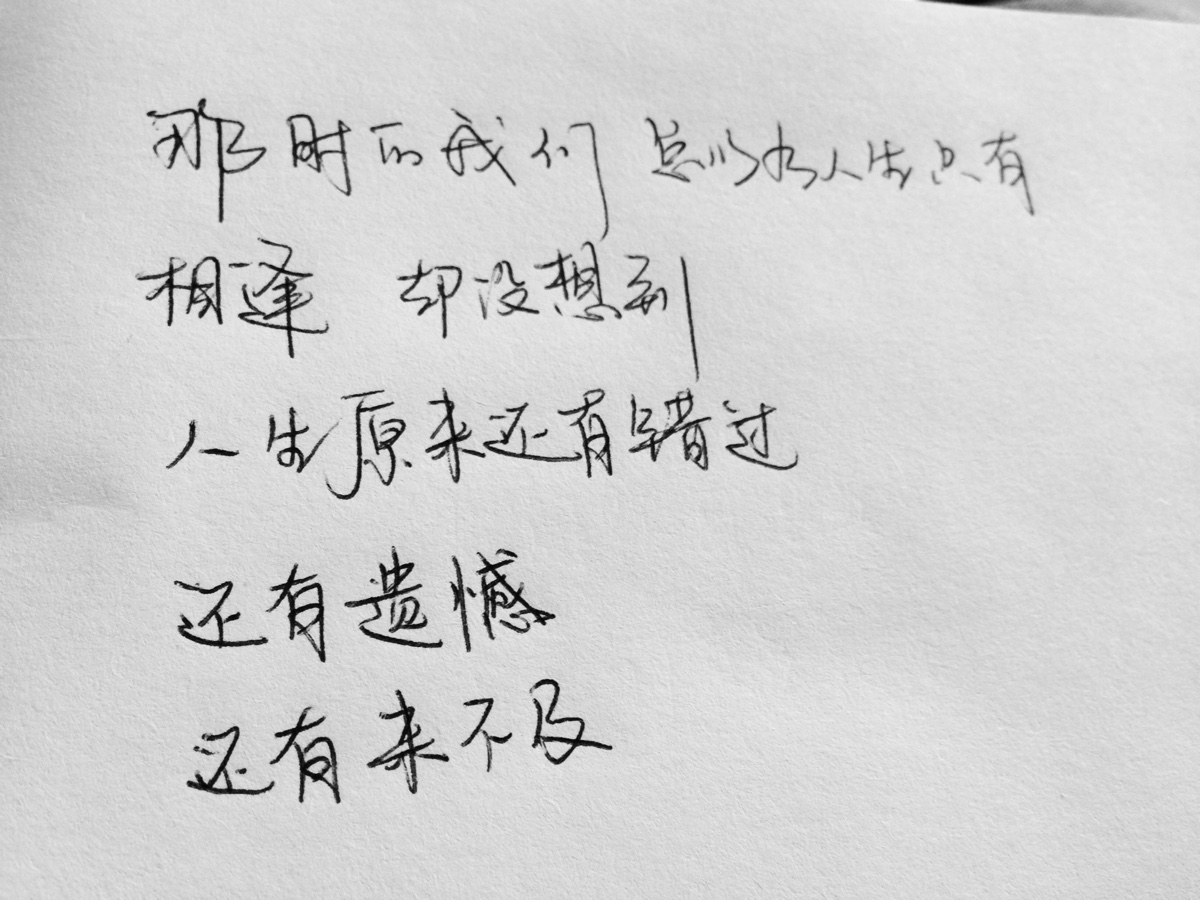 那时的我们 总以为人生只有
相逢 却没想到
人生原来还有错过
还有遗憾
还有来不及